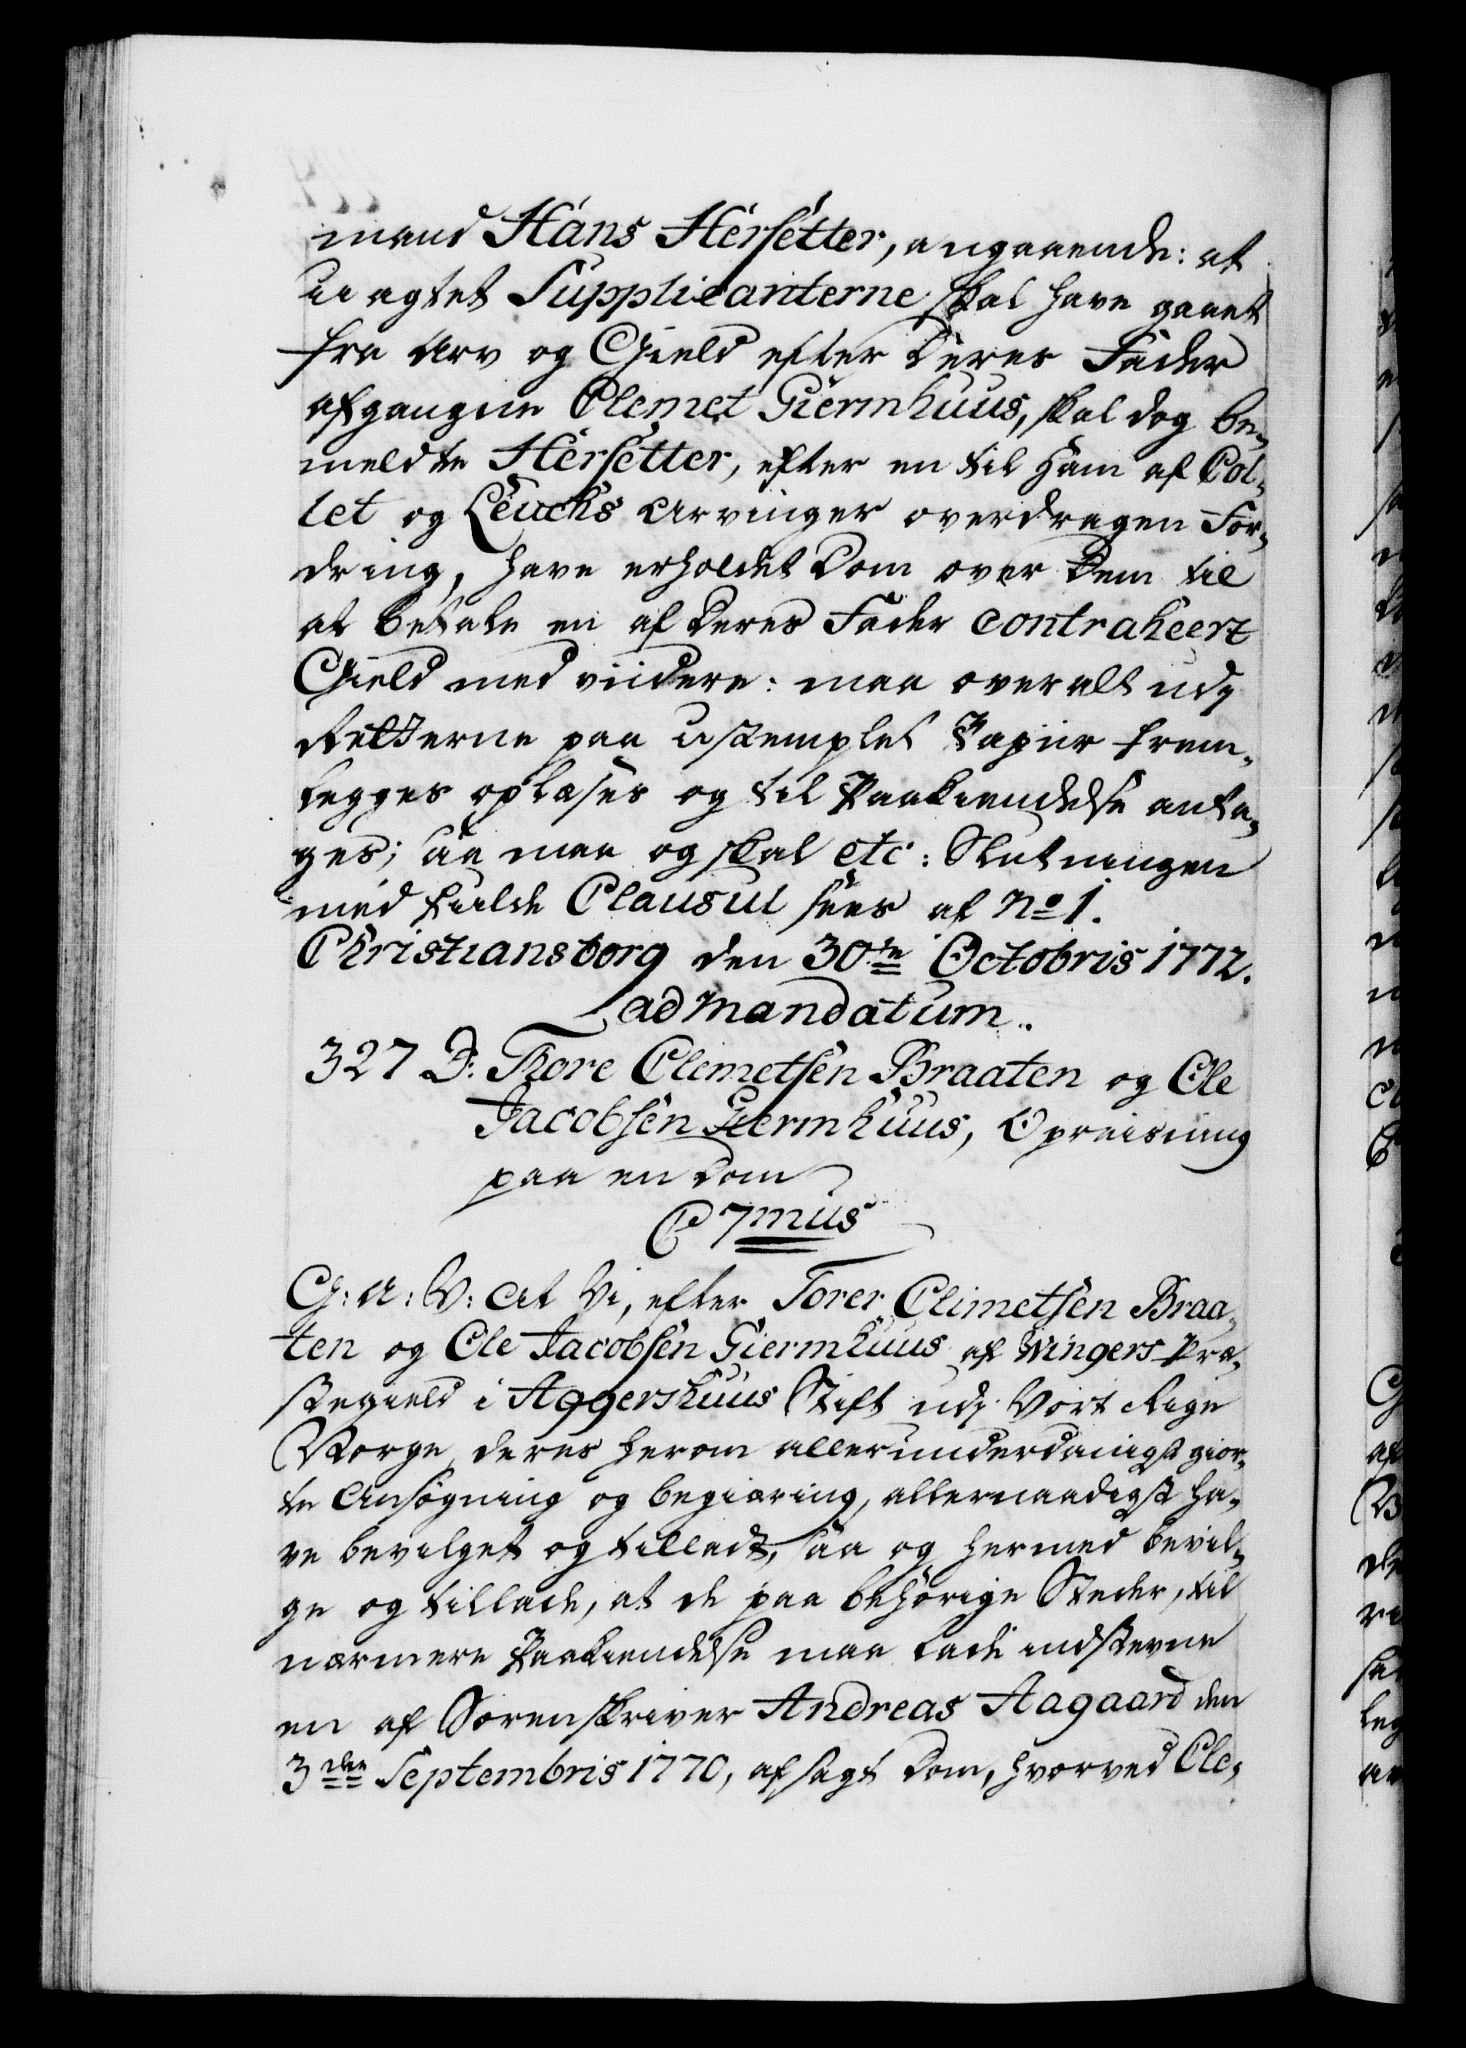 mand Hans Hersetter, angaaende: at
uagtet Supplicanterne skal have gaaet
fra Arv og Gield efter deres Fader
afgangne Clemet Giermhuus, skal dog be-
meldte Hersetter, efter en til ham af Col-
let og Leuchs Arvinger overdragen For-
dring, have erholdet Dom over dem til
at betale en af deres Fader contraheert
Gield med viidere: maa overalt udj
Retterne paa ustemplet Papiir frem-
legges oplæses og til Paakiendelse anta-
ges; saa maa og skal etc: Slutningen
med fulde Clausul sees af No 1.
Christiansborg den 30te Octobris 1772.
ad mandatum.
327 B: Thore Clemetsen Braaten og Ole
Jacobsen Giermhuus, Opreisning
paa en Dom
C 7mus
G: A: V: At Vi, efter Torer Climetsen Braa-
ten og Ole Jacobsen Giermhuus af Wingers Præ-
stegield i Aggershuus Stift udj Vort Rige
Norge, deres herom allerunderdanigst gior-
te Ansøgning og begiæring, allernaadigst ha-
ve bevilget og tilladt, saa og hermed bevil-
ge og tillade, at de paa behørige Steder, til
nærmere Paakiendelse maa lade indstevne
en af Sorenskriver Andreas Aagaard den
3die Septembris 1770, afsagt Dom, hvorved Cle-